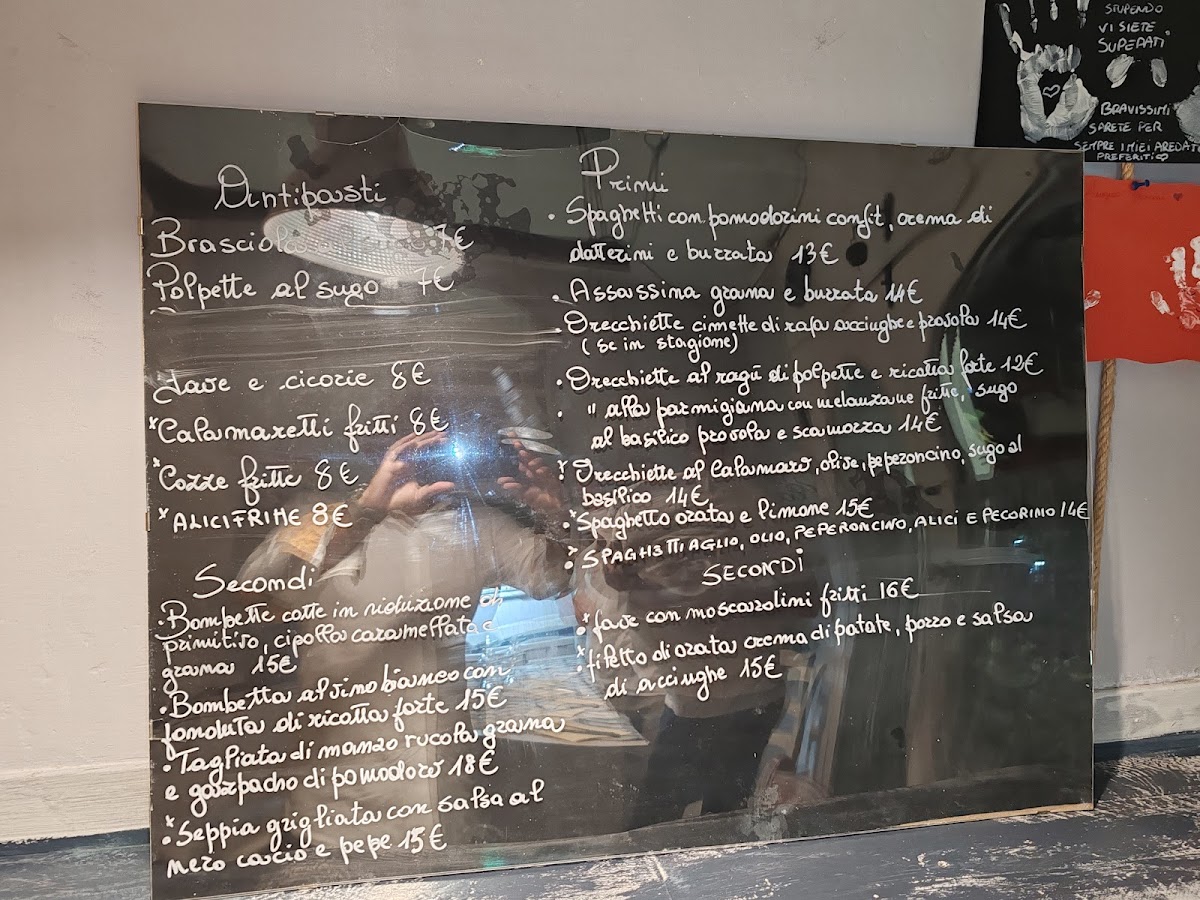 Antipasti
Brasciola al sugo 7€
Polpette al sugo 7€
fave e cicorie 8€
*Calamaretti fritti 8€
*Cozze fritte 8€
*ALICI FRITTE 8€
Secondi
• Bombette cotte in riduzione di
primitivo, cipolla caramellata e
grana 15€
• Bombetta al vino bianco con
fonduta di ricotta forte 15€
• Tagliata di manzo rucola grana
e gazpacho di pomodoro 18€
*• Seppia grigliata con salsa al
nero cacio e pepe 15€
Primi
• Spaghetti con pomodorini confit, crema di
datterini e burrata 13€
• Assassina grana e burrata 14€
• Orecchiette cimette di rapa acciughe e provola 14€
(se in stagione)
• Orecchiette al ragù di polpette e ricotta forte 12€
• " alla parmigiana con melanzane fritte, sugo
al basilico provola e scamorza 14€
*• Orecchiette al Calamaro, olive, peperoncino, sugo al
basilico 14€
•*Spaghetto orata e limone 15€
*• SPAGHETTI AGLIO, OLIO, PEPERONCINO, ALICI E PECORINO 14€
SECONDI
•* fave con moscarolini fritti 16€
*• filetto di orata crema di patate, porro e salsa
di acciughe 15€
STUPENDO
VI SIETE
SUPERATI"
BRAVISSIMI
SARETE PER
SEMPRE I MIEI AREDATI
PREFERITI♡